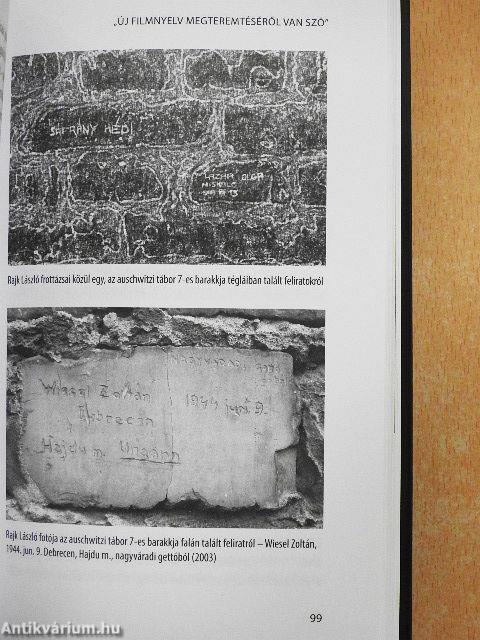 „ÚJ FILMNYELV MEGTEREMTÉSÉRŐL VAN SZÓ”
SAFRÁNY HÉDI
OLGA
Rajk László frottázsai közül egy, az auschwitzi tábor 7-es barakkja tégláiban talált feliratokról
Wiesel Zoltán
1944 jun. 9.
Debrecen
Hajdu m. Ungarn
Rajk László fotója az auschwitzi tábor 7-es barakkja falán talált feliratról – Wiesel Zoltán,
1944. jun. 9. Debrecen, Hajdu m., nagyváradi gettóból (2003)
99
Antikvárium.hu